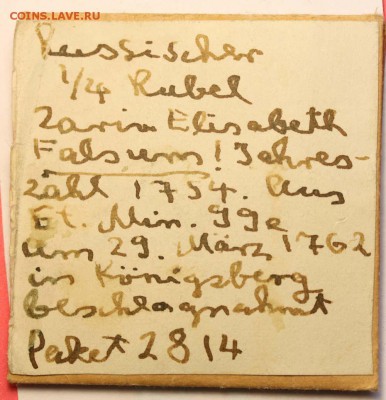 COINS.LAVE.RU
Russischer
1/4 Rubel
Zarin Elisabeth
Falsum! Jahres-
zahl 1754. Aus
Et. Min. 99e
am 29. März 1762
in Königsberg
beschlagnahmt
Paket 2814